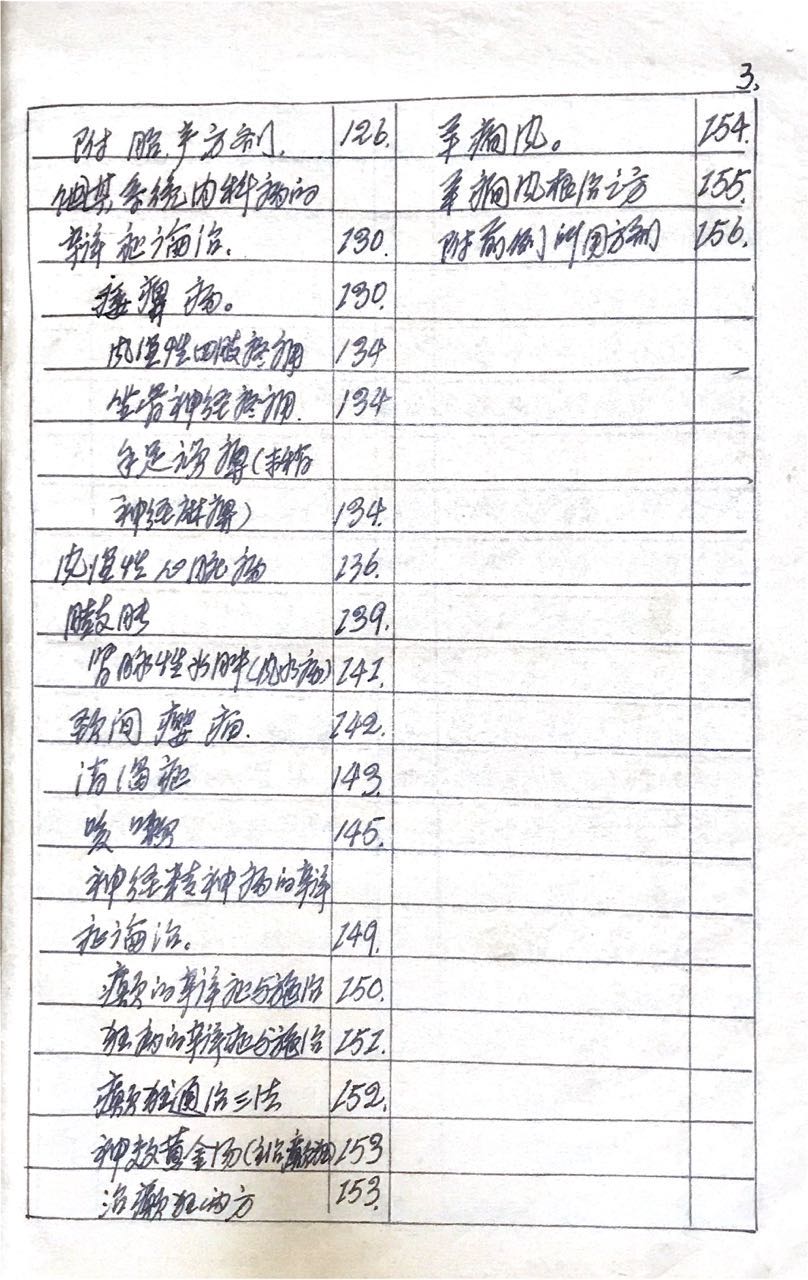 3.
附胎产方剂. 126.
其系统内科病的
辨证论治. 130.
痿痹病。 130.
风湿性四肢疼痛 134
坐骨神经疼痛. 134
手足 痹(末梢
神经麻痹) 134.
风湿性心脏病 136.
臌胀 139.
肾脏性水肿(风水病) 141.
颈间瘿病. 142.
消渴症 143.
咳嗽 145.
神经精神病的辨
证论治。 149.
癫的辨证与施治 150.
狂病的辨证与施治 151.
癫狂通治三法 152.
神效黄金汤(主治癫狂) 153
治癫狂的方 153.
羊痫风。 154.
羊痫风根治之方 155.
附前例所用方剂 156.